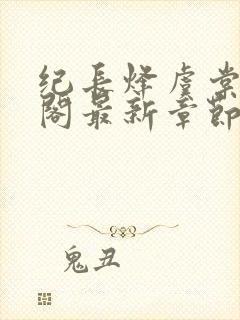 纪长烽虞棠
阁最新章节
鬼丑